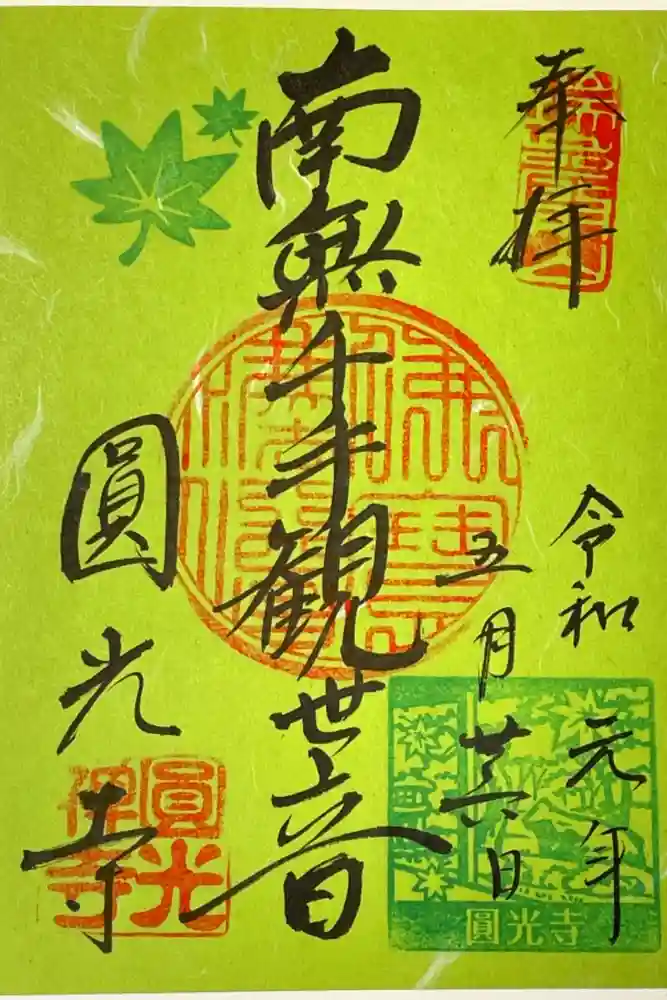 奉拝
令和元年
五月廿六日
南無千手観世音
圓光寺
圓光禅寺
圓光寺